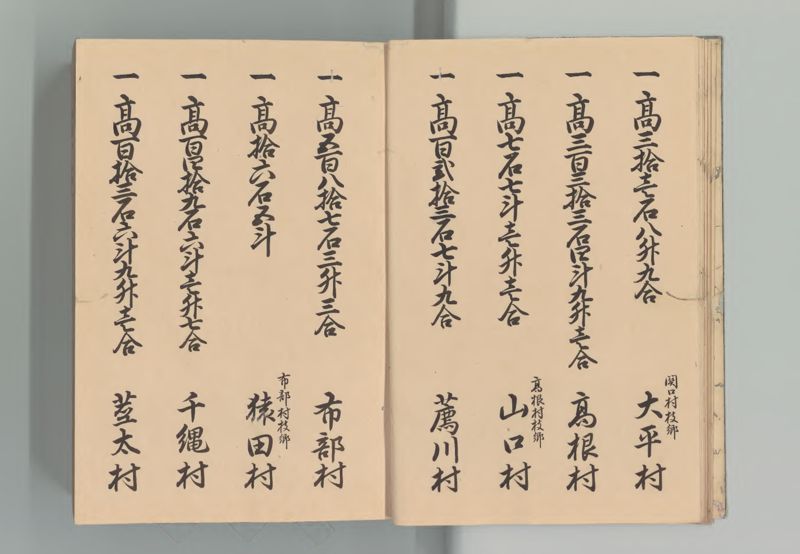 一高三拾壱石八升九合
関口村枝郷
大平村
一高三百三拾三石四斗九升壱合
高根村
一高七石七斗壱升壱合
高根村枝郷
山口村
一高百弐拾三石七斗九合
薦川村
一高五百八拾七石三升三合
布部村
一高拾六石五斗
布部村枝郷
猿田村
一高百四拾九石六斗壱升七合
千縄村
一高百拾三石六斗九升壱合
太村